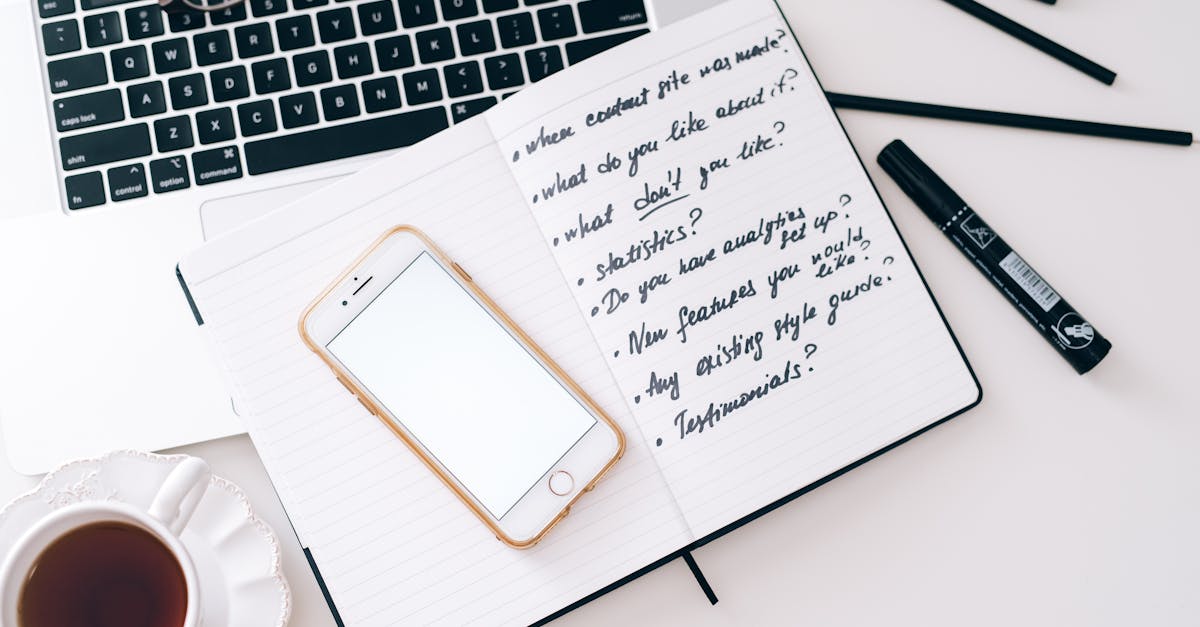 esc
! 1 @ 2
tab Q W E R T Y U I O P return
caps lock A S D F G H J K L
shift Z X C V B N M < , > . ? /
fn control option command ⌘ ⌘
• when content site was made?
• what do you like about it?
• what don't you like?
• statistics?
• Do you have analytics
set up?
• New features you would
like?
• Any existing style guide?
• Testimonials?